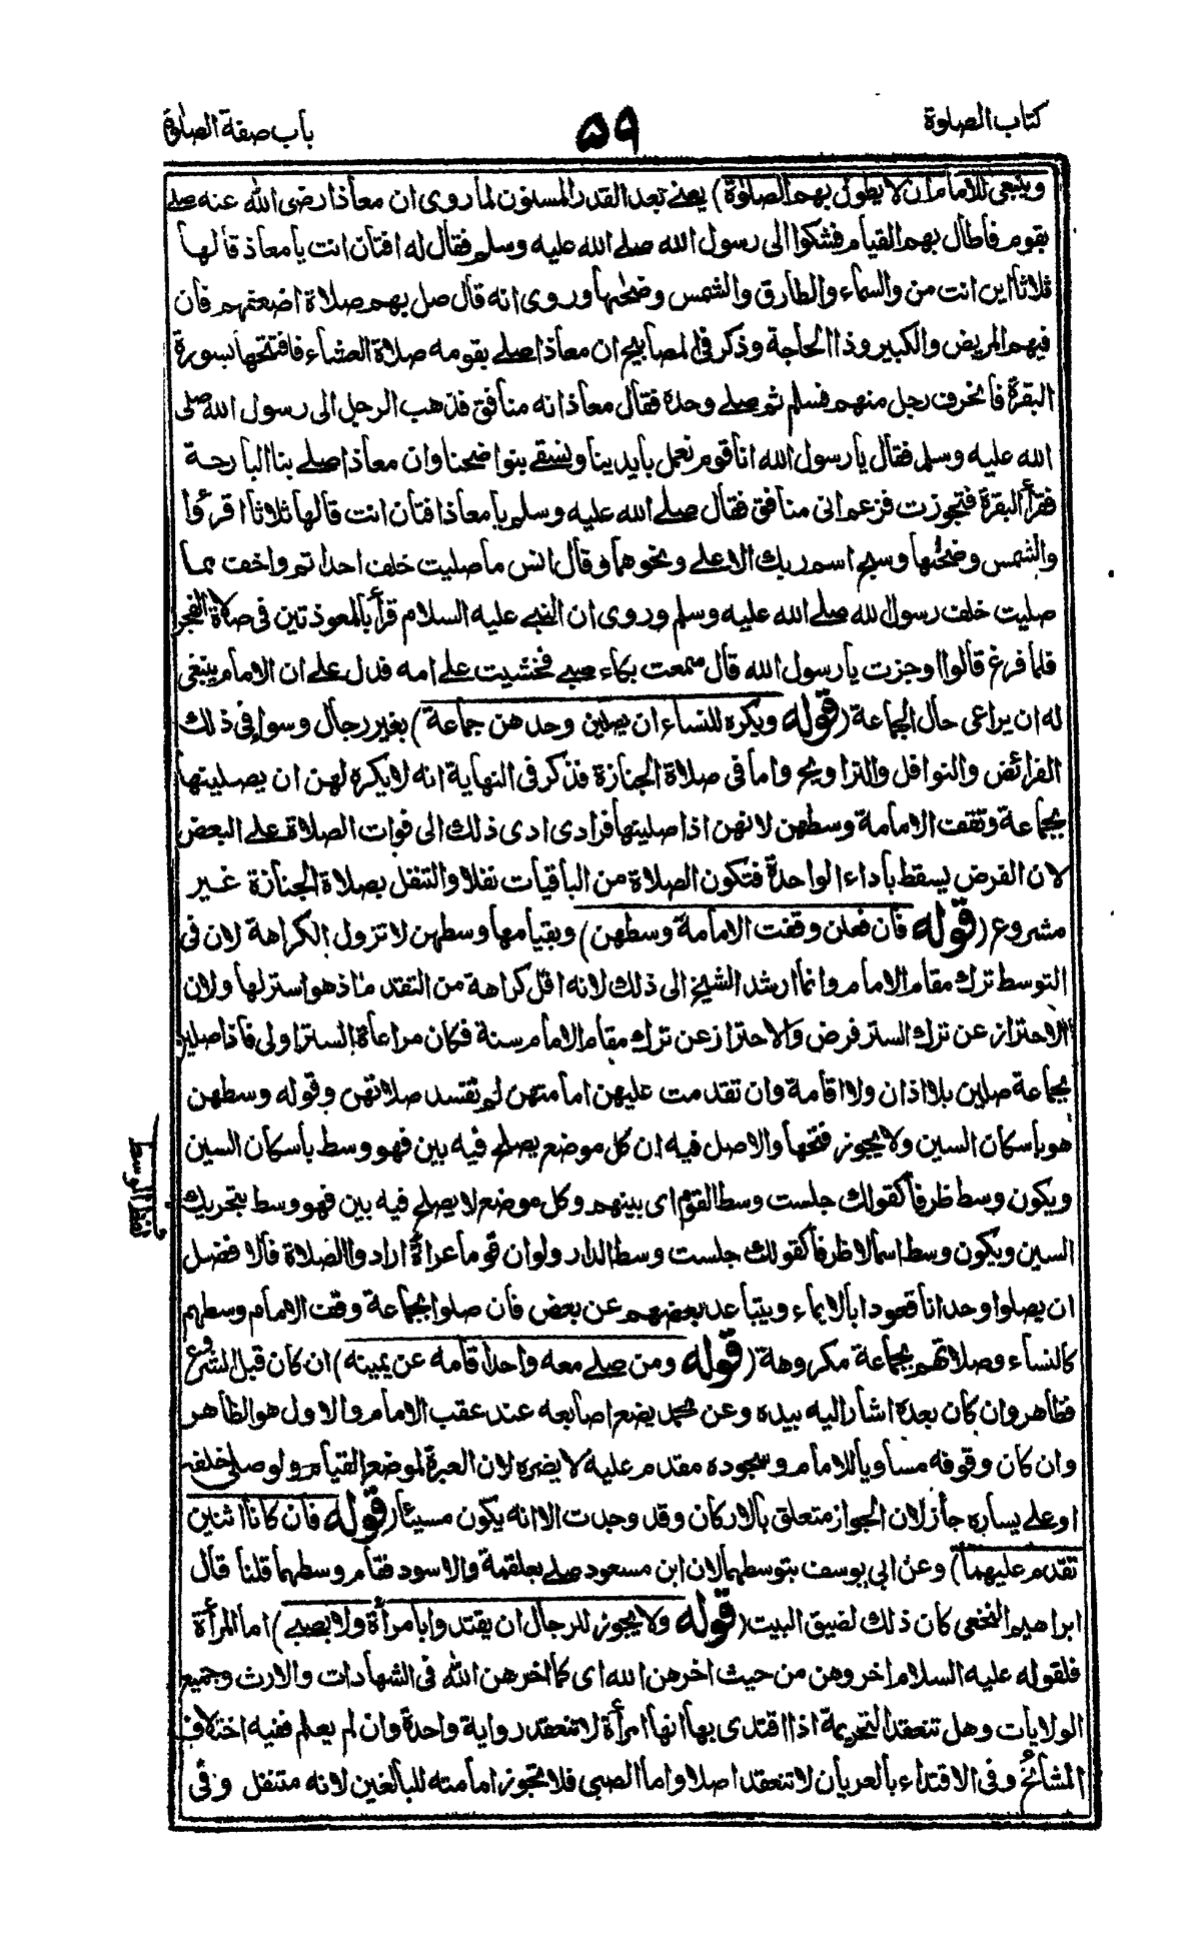 كتاب الصلوة
٥٩
باب صفة الصلوة
وينبغي للامام ان لا يطول بهم الصلوة) يعني بعد القدر المسنون لما روى ان معاذا رضى الله عنه صلے
بقوم فاطال بهم القيام فشكوا الى رسول الله صلے الله عليه وسلم فقال له افتان انت يا معاذ قالها
ثلاثا اين انت من والسماء والطارق والشمس وضحٰها وروى انه قال صل بهم صلاة اضعفهم فان
فيهم المريض والكبير وذا الحاجة وذكر فى المصابيح ان معاذا صلے بقومه صلاة العشاء فافتتحها بسورة
البقرة فانحرف رجل منهم فسلم ثم صلے وحدة فقال معاذ انه منافق فذهب الرجل الى رسول الله صلى
الله عليه وسلم فقال يا رسول الله انا قوم نعمل بايدينا ونسقے بنواضحنا وان معاذا صلے بنا البارحة
فقرأ البقرة فتجوزت فزعم انى منافق فقال صلے الله عليه وسلم يا معاذ افتان انت قالها ثلاثا اقرءوا
والشمس وضحٰها وسبح اسم ربك الاعلے ونحوهما وقال انس ما صليت خلف احد اتم واخف مما
صليت خلف رسول لله صلے الله عليه وسلم وروى ان النبے عليه السلام قرأ بالمعوذتين فى صلاة الفجر
فلما فرغ قالوا اوجزت يا رسول الله قال سمعت بكاء صبے فخشيت علے امه فدل علے ان الامام ينبغى
له ان يراعى حال الجماعة (قوله ويكره للنساء ان يصلين وحدهن جماعة) بغير رجال وسوا في ذلك
الفرائض والنوافل والتراويح واما فى صلاة الجنازة فذكر فى النهاية انه لا يكره لهن ان يصلينها
بجماعة وتقف الامامة وسطهن لانهن اذا صلينها فرادى ادى ذلك الى فوات الصلاة علے البعض
لان الفرض يسقط باداء الواحدة فتكون الصلاة من الباقيات نفلا والتنفل بصلاة الجنازة غير
مشروع (قوله فان فعلن وقفت الامامة وسطهن) وبقيامها وسطهن لا تزول الكراهة لان فى
التوسط ترك مقام الامام وانما ارشد الشيخ الى ذلك لانه اقل كراهة من التقدم اذ هو استر لها ولان
الاحتراز عن ترك الستر فرض والاحتراز عن ترك مقام الامام سنة فكان مراعاة الستر اولى فاذا صلين
بجماعة صلين بلا اذان ولا اقامة وان تقدمت عليهن امامتهن لم تفسد صلاتهن وقوله وسطهن
هو باسكان السين ولا يجوز فتحها والاصل فيه ان كل موضع يصلح فيه بين فهو وسط باسكان السين
ويكون وسط ظرفا كقولك جلست وسط القوم اى بينهم وكل موضع لا يصلح فيه بين فهو وسط بتحريك
السين ويكون وسط اسما لا ظرفا كقولك جلست وسط الدار ولو ان قوما عراة ارادوا الصلاة فالافضل
ان يصلوا وحدانا قعودا بالايماء ويتباعد بعضهم عن بعض فان صلوا بجماعة وقف الامام وسطهم
كالنساء وصلاتهم بجماعة مكروهة (قوله ومن صلے معه واحدا قامه عن يمينه) ان كان قبل الشروع
فظاهر وان كان بعدة اشار اليه بيده وعن محمد يضع اصابعه عند عقب الامام والاول هو الظاهر
وان كان وقوفه مساويا للامام وسجوده مقدم عليه لا يضره لان العبرة لموضع القيام ولو صلى خلفه
او على يساره جاز لان الجواز متعلق بالاركان وقد وجدت الا انه يكون مسيئا (قوله فان كانا اثنين
تقدم عليهما) وعن ابى يوسف يتوسطهما لان ابن مسعود صلے بعلقمة والاسود فقام وسطهما قلنا قال
ابراهيم النخعى كان ذلك لضيق البيت (قوله ولا يجوز للرجال ان يقتدوا بامرأة ولا بصبے) اما المرأة
فلقوله عليه السلام اخروهن من حيث اخرهن الله اى كما اخرهن الله فى الشهادات والارث وجميع
الولايات وهل تنعقد التحريمة اذا اقتدى بها انها امرأة لا تنعقد رواية واحدة وان لم يعلم ففيه اختلاف
المشائخ وفى الاقتداء بالعريان لا تنعقد اصلا واما الصبى فلا تجوز امامته للبالغين لانه متنفل وفى
لفظ الوسط